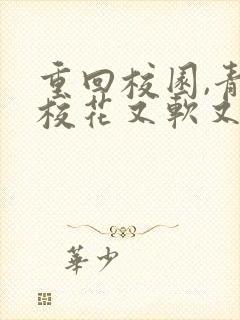 重回校園,青
校花又軟又
華少